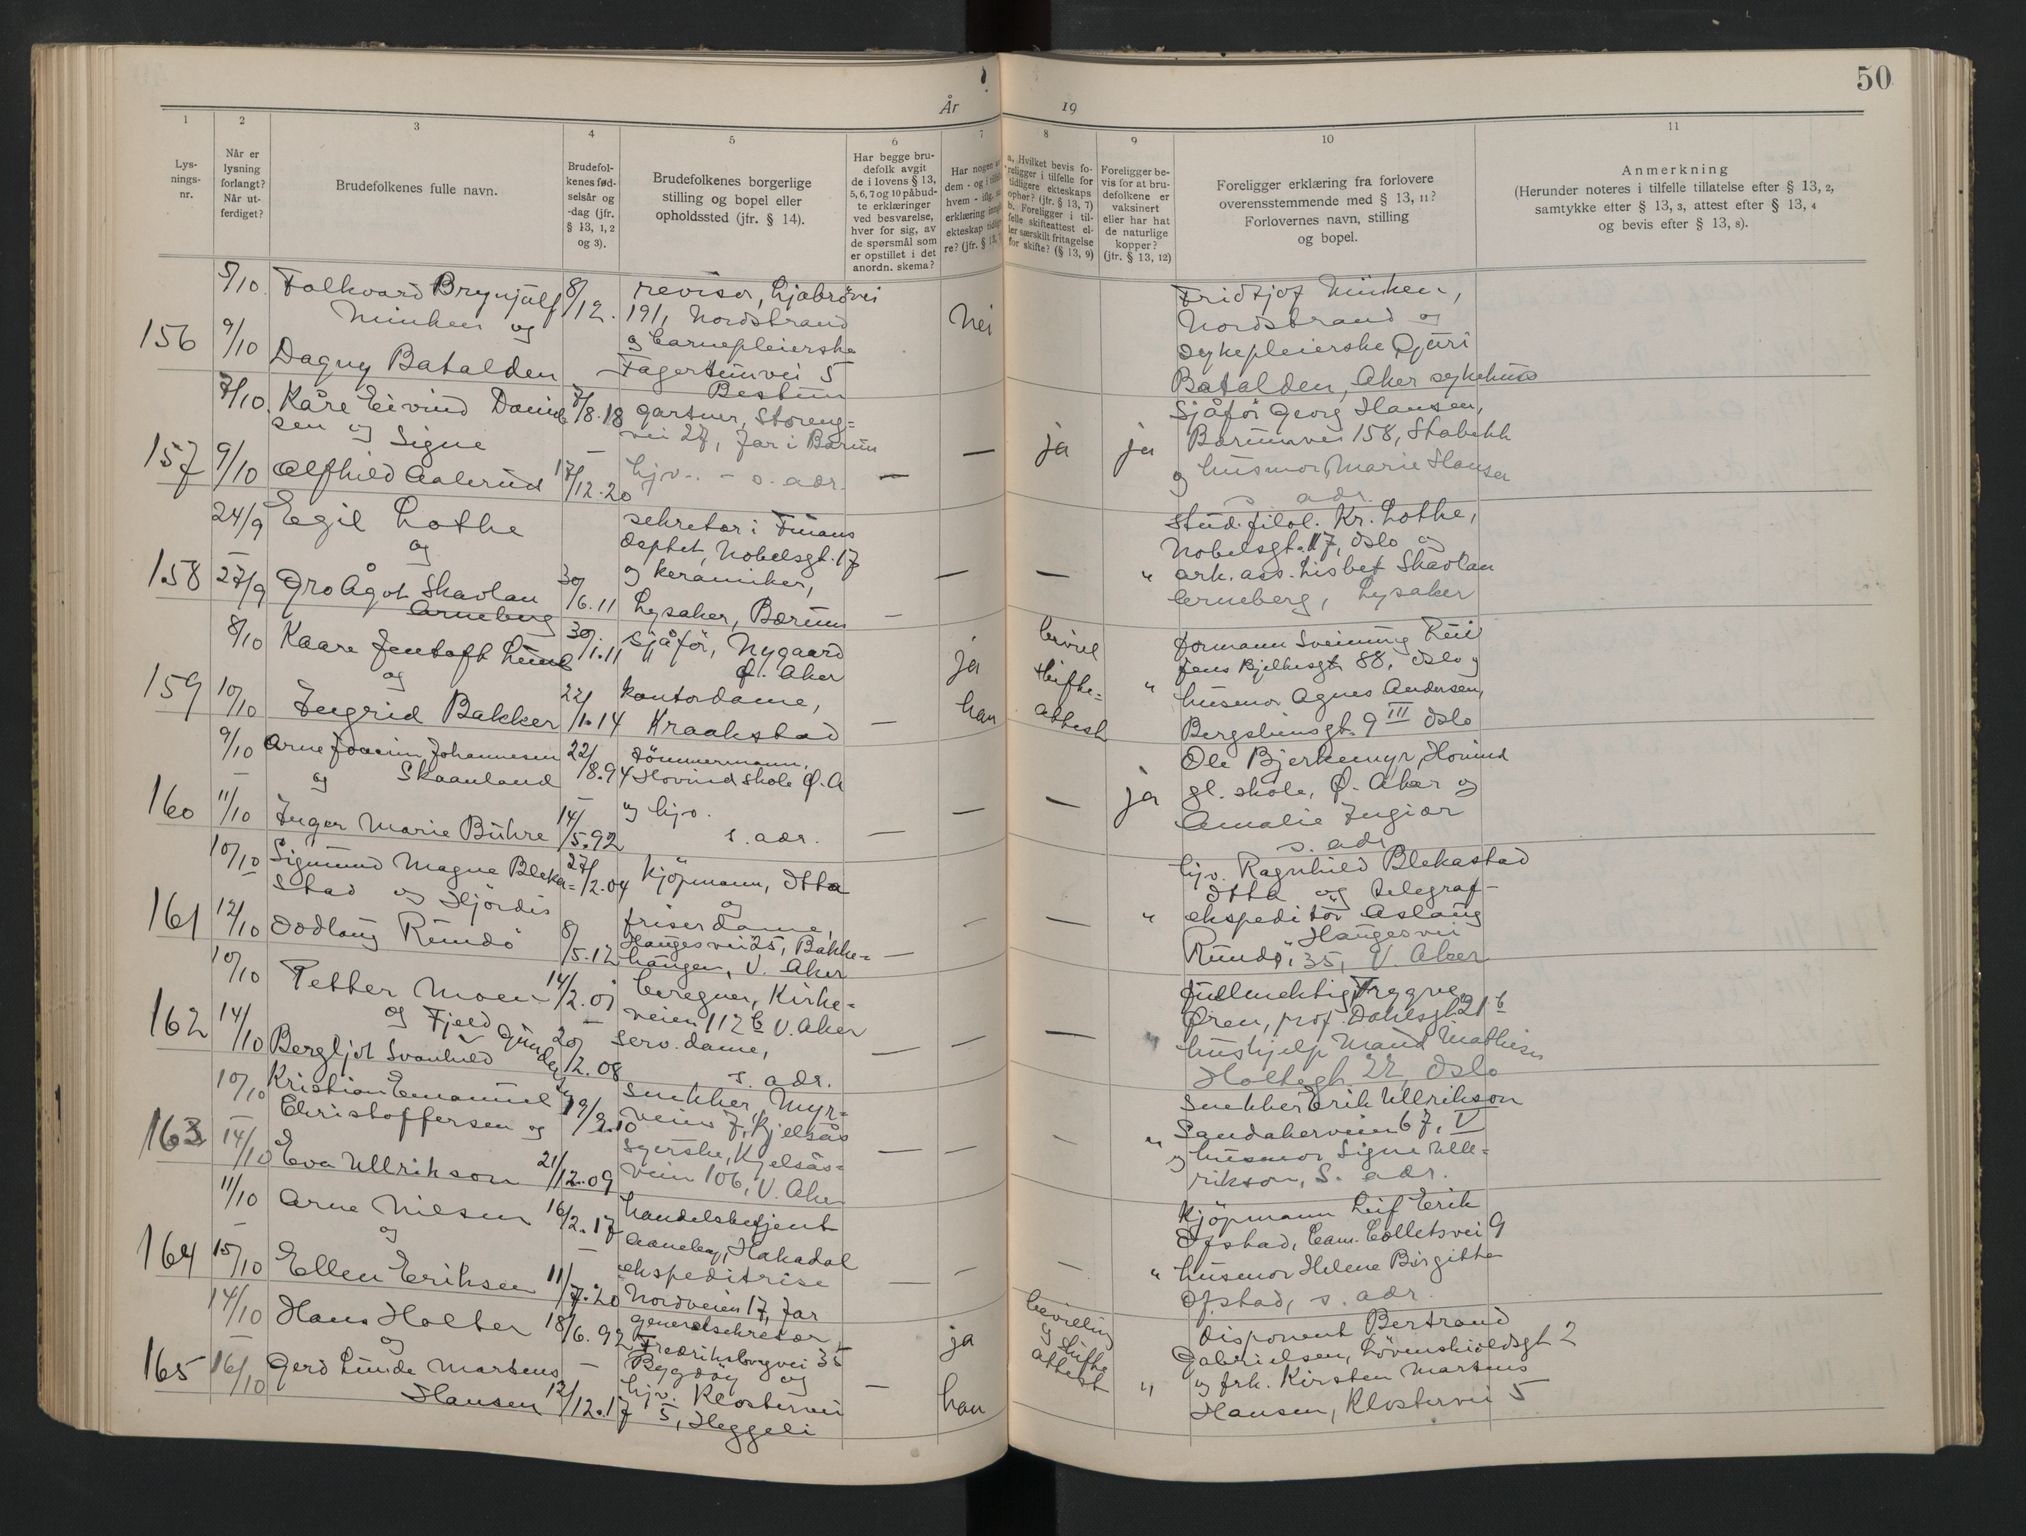 50
År 19
1 2 3 4 5 6 7 8 9 10 11
Lys-
nings-
nr.
Når er
lysning
forlangt?
Når ut-
ferdiget?
Brudefolkenes fulle navn.
Brudefol-
kenes fød-
selsår og
-dag (jfr.
§ 13, 1, 2
og 3).
Brudefolkenes borgerlige
stilling og bopel eller
opholdssted (jfr. § 14).
Har begge bru-
defolk avgit
de i lovens § 13,
5, 6, 7 og 10 påbud-
te erklæringer
ved besvarelse,
hver for sig, av
de spørsmål som
er opstillet i det
anordn. skema?
Har nogen av
dem - og i
hvem -
erklæring
ekteskap
re? (jfr. § 13,
a. Hvilket bevis fo-
religger i tilfelle for
tidligere ekteskaps
ophør? (jfr. § 13, 7)
b. Foreligger i til-
felle skifteattest el-
ler særskilt fritagelse
for skifte? (§ 13, 9)
Foreligger be-
vis for at bru-
defolkene er
vaksinert
eller har hat
de naturlige
kopper?
(jfr. § 13, 12)
Foreligger erklæring fra forlovere
overensstemmende med § 13, 11?
Forlovernes navn, stilling
og bopel.
Anmerkning
(Herunder noteres i tilfelle tillatelse efter § 13, 2,
samtykke efter § 13, 3, attest efter § 13, 4
og bevis efter § 13, 8).
156
5/10.
9/10
Folkvard Brynjulf
Munken og
Dagny Batalden
8/12.
revisor, Ljabrøvei
191, Nordstrand
og barnepleierske
Fagertunvei 5
Bestum
Nei
Fridtjof Munken,
Nordstrand og
sykepleierske Guri
Batalden, Aker sykehus
157
7/10.
9/10
Kåre Eivind Daniel
sen og Signe
Alfhild Aalerud
7/8.18
—
17/12.20
gartner, Storeng=
vei 27, Jar i Bærum
hjv. - s. adr.
—
—
ja
ja
Sjåfør Georg Hansen,
Bærumsvei 158, Stabekk
og husmor Marie Hansen
s. adr.
158
24/9
—
27/9
Egil Lothe
og
Gro Ågot Skavlan
Arneberg
30/6.11
sekretær i Finans
deptet, Nobelsgt. 17
og keramiker,
Lysaker, Bærum
—
—
—
"
Stud. filol. Kr. Lothe,
Nobelsgt. 17, Oslo og
ark. ass. Lisbet Skavlan
Arneberg, Lysaker
159
8/10
10/10
Kaare Jentoft Lund
og
Ingrid Bakker
30/1.11
22/10.14
Sjåfør, Nygaard
Ø. Aker
kontordame,
Kraakstad
—
ja
han
bevil
skifte=
attest
"
formann Sveinung Ruii
Jens Bjelkesgt 88, Oslo og
husmor Agnes Andersen,
Bergsliensgt. 9 III Oslo
160
9/10
—
11/10
Arne Joacim Johannesen
og Skaanland
Inger Marie Buhre
22/8.94
—
14/5.92
tömmermann,
Hovind skole Ø. A
og hjv.
s. adr.
—
—
—
ja
Ole Bjerkemyr, Hovind
gl. skole, Ø. Aker og
Amalie Ingier
s. adr
161
10/10
12/10
Sigmund Magne Bleka=
stad og Hjördis
Oodlaug Rundö
27/2.04
8/5.12
kjöpmann, Otta
og
friserdame,
Haugesvei 25, Bakke=
haugen, V. Aker
—
-
—
"
hjv. Ragnhild Blekastad
Otta og telegraf-
ekspeditør Aslaug
Haugesvei
Rundö, 35, V. Aker
162
10/10
14/10
Petter Moen
og Fjeld
Bergljot Svanhild Gundersen
14/2.01
—
20/2.08
beregner, Kirke=
veien 112 b V. Aker
serv. dame,
s. adr.
—
—
—
"
fullmektig Trygve
Øren, prof. Dahlsgt. 21 b
hushjelp Maud Mathisen
Holtegt. 22, Oslo
163
10/10
—
14/10
Kristian Emanuel
Christoffersen og
Eva Ullrikson
19/2.10
21/12.09
snekker, Myr=
veien 7, Kjelsås
syerske, Kjelsås-
veien 106, V. Aker
—
—
-
"
Snekker Erik Ullrikson
Sandakerveien 67, V
og husmor Signe Ulle=
rikson, s. adr.
164
11/10
—
15/10
Arne Nilsen
og
Ellen Eriksen
16/2.17
—
11/7.20
handelsbetjent
Aaneby, Hakadal
ekspeditrise
Nordveien 17, Jar
—
-
—
"
Kjöpmann Leif Erik
Ofstad, Cam. Colletsvei 9
husmor Helene Birgitte
Ofstad, s. adr.
165
14/10
—
16/10
Hans Holter
og
Gerd Lunde Martens
Hansen
18/6.92
—
12/12.17
generalsekretær,
Fredriksborgvei 35
Bygdöy og
hjv. Klostervei
5, Heggeli
—
ja
han
bevilling
og skifte
attest
"
Disponent Bertrand
Gabrielsen, Lövenskioldsgt 2
og frk. Kirsten Martens
Hansen, Klostervei 5